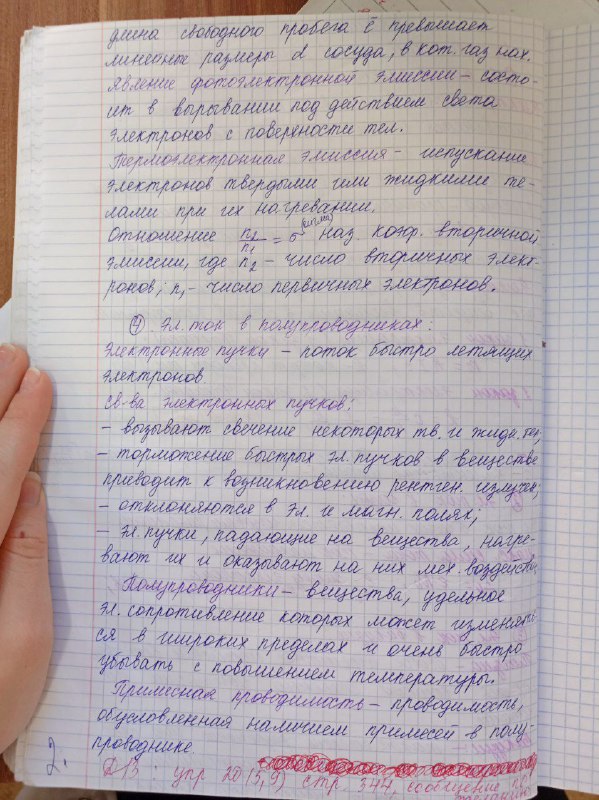 длина свободного пробега ℓ превышает
линейные размеры d сосуда, в кот. газ нах.
Явление фотоэлектронной эмиссии – состо-
ит в вырывании под действием света
электронов с поверхности тел.
Термоэлектронная эмиссия – испускание
электронов твердыми или жидкими те-
лами при их нагревании.
Отношение n₂/n₁ = σ (сигма) наз. коэф. вторичной
эмиссии, где n₂ – число вторичных элект-
ронов; n₁ – число первичных электронов.
④ Эл. ток в полупроводниках:
Электронные пучки – поток быстро летящих
электронов
Св-ва электронных пучков:
– вызывают свечение некоторых тв. и жидк. тел;
– торможение быстрых эл. пучков в веществе
приводит к возникновению рентген. излучен;
– отклоняются в эл. и магн. полях;
– эл. пучки, падающие на вещества, нагре-
вают их и оказывают на них мех. воздейств.
Полупроводники – вещества, удельное
эл. сопротивление которых может изменять-
ся в широких пределах и очень быстро
убывать с повышением температуры.
Примесная проводимость – проводимость,
обусловленная наличием примесей в полу-
проводнике.
2.
ДЗ: упр 20 (5,9) стр. 344, сообщение по